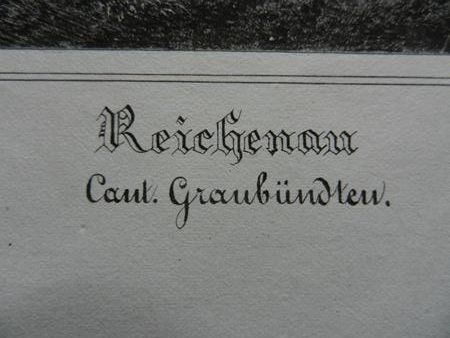 Reichenau
Cant. Graubündten.